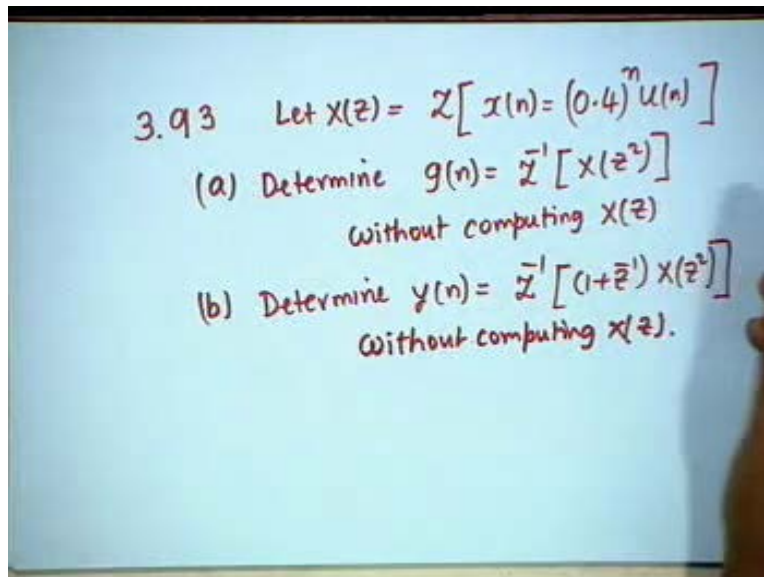 3.93 Let X(z) = Z[x(n) = (0.4)ⁿ u(n)]
(a) Determine g(n) = Z⁻¹[X(z²)]
without computing X(z)
(b) Determine y(n) = Z⁻¹[(1+z⁻¹) X(z²)]
without computing X(z).